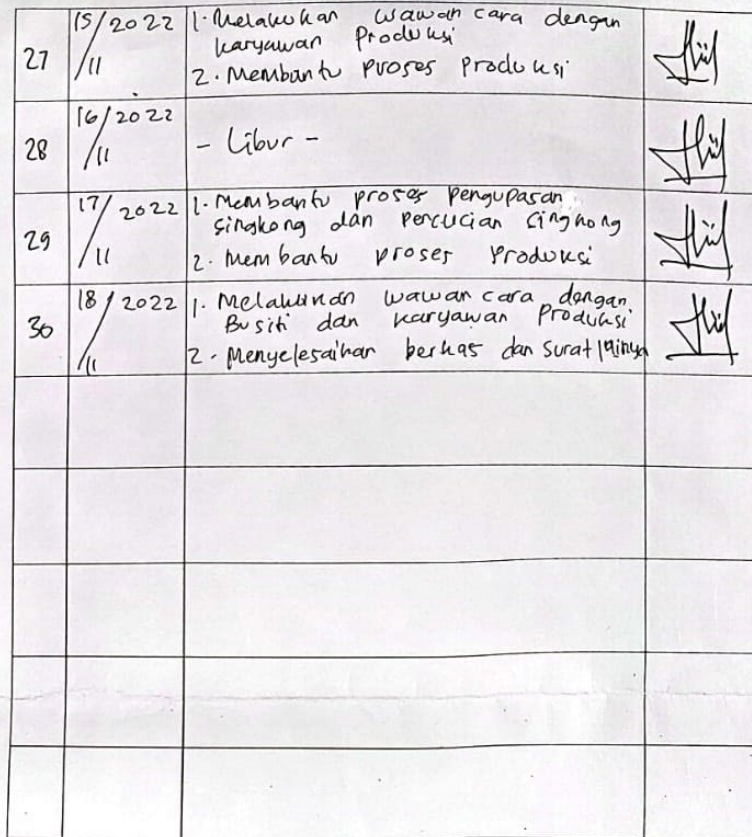 15/11 2022 1. Melakukan wawancara dengan
karyawan Produksi
27
2. Membantu proses produksi
16/11 2022
28 - Libur -
17/11 2022 1. Membantu proses pengupasan
singkong dan percucian singkong
29
2. Membantu proses Produksi
18/11 2022 1. Melakukan wawancara dengan
Bu siti dan karyawan Produksi
30
2. Menyelesaikan berkas dan surat lainya